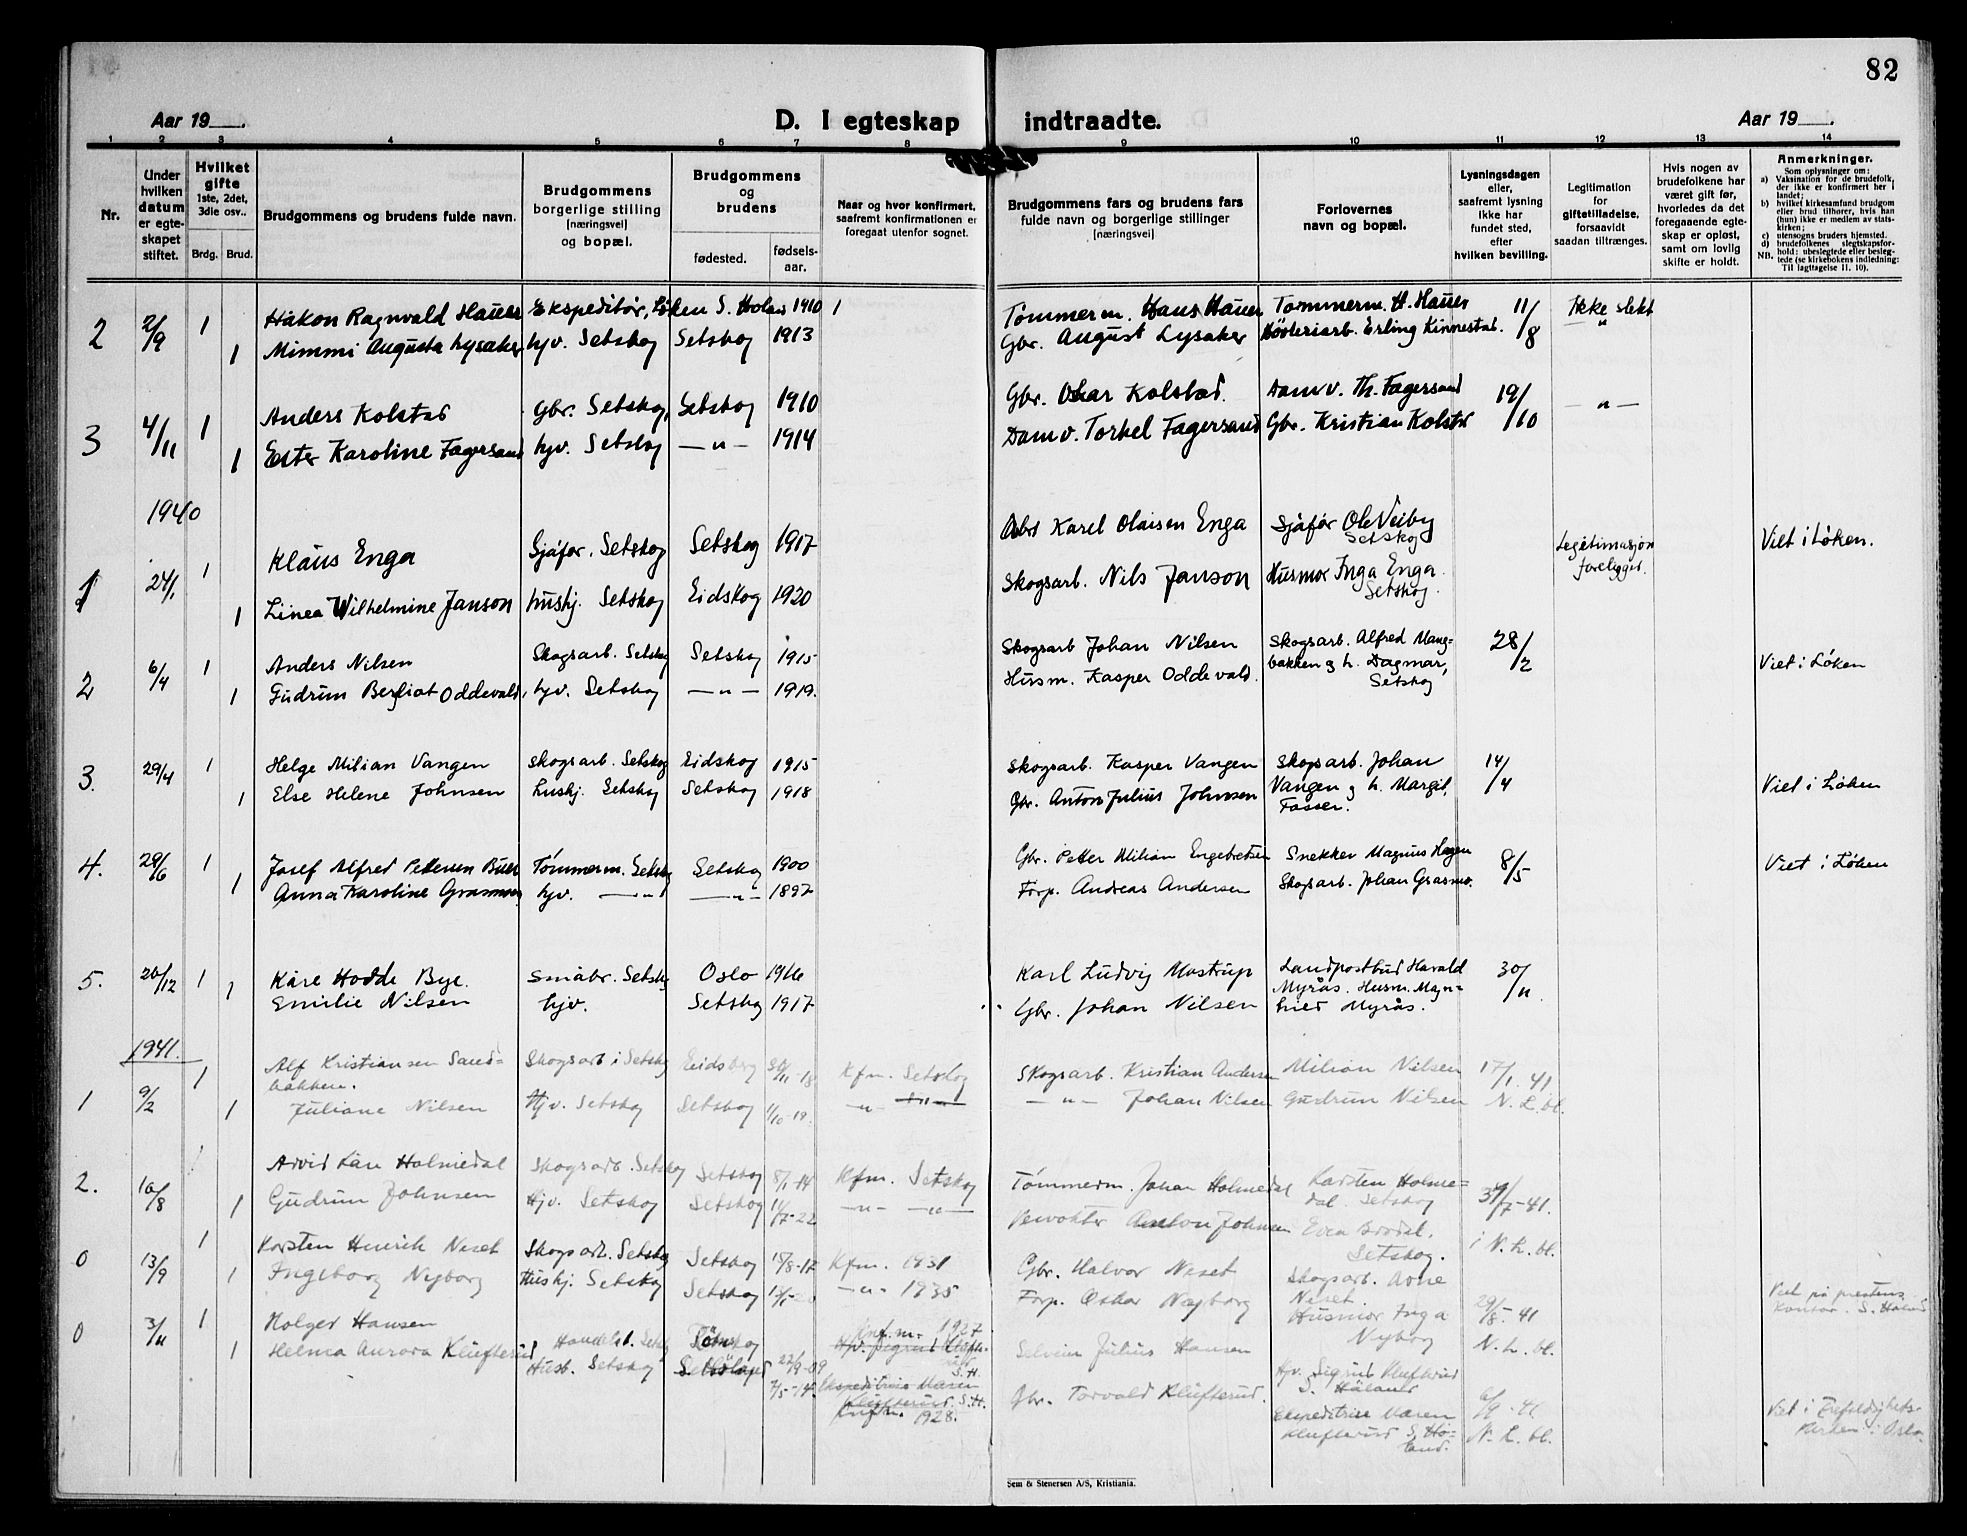 82
Aar 19
D. I egteskap indtraadte.
Aar 19
1 2 3 4 5 6 7 8 9 10 11 12 13 14
Nr.
Under hvilken datum er egteskapet stiftet.
Hvilket gifte 1ste, 2det, 3die osv..
Brdg. Brud.
Brudgommens og brudens fulde navn.
Brudgommens borgerlige stilling (næringsvei) og bopæl.
Brudgommens og brudens
fødested. fødselsaar.
Naar og hvor konfirmert, saafremt konfirmationen er foregaat utenfor sognet.
Brudgommens fars og brudens fars fulde navn og borgerlige stillinger (næringsvei)
Forlovernes navn og bopæl.
Lysningsdagen eller, saafremt lysning ikke har fundet sted, efter hvilken bevilling.
Legitimation for giftetilladelse, forsaavidt saadan tiltrænges.
Hvis nogen av brudefolkene har været gift før, hvorledes da det foregaaende egteskap er opløst, samt om lovlig skifte er holdt.
Anmerkninger.
Som oplysninger om:
a) Vaksination for de brudefolk, der ikke er konfirmert her i landet;
b) hvilket kirkesamfund brudgom eller brud tilhører, hvis han (hun) ikke er medlem av statskirken;
c) utensogns bruders hjemsted.
d) brudefolkenes slegtskapsforhold: ubeslegtede eller beslegtede (se kirkebokens indledning:
NB. Til Iagttagelse II. 10).
2 2/9 1 Håkon Ragnvald Hauer Ekspeditør, Løken S. Høland 1910 1 Tømmerm. Hans Hauer Tømmerm. H. Hauer 11/8 Ikke slekt
1 Mimmi Augusta Lysaker hjv. Setskog Setskog 1913 Gbr. August Lysaker Erling Kinnestad. — " —
3 4/11 1 Anders Kolstad Gbr. Setskog, Setskog 1910 Gbr. Oskar Kolstad. Damv. Th. Fagersand 19/10 — " —
1 Ester Karoline Fagersand hjv. Setskog — " — 1914 Damv. Torkel Fagersand Gbr. Kristian Kolstad
1940
1 24/1 1 Klaus Enga Sjåfør. Setskog Setskog 1917 Arb. Karel Olaisen Enga Sjåfør Ole Veiby Setskog Legitimasjon foreligger. Viet i Løken.
1 Linea Wilhelmine Janson hushj. Setskog Eidskog 1920 Skogsarb. Nils Janson Husmor Inga Enga. Setskog.
2 6/4 1 Anders Nilsen Skogsarb. Setskog Setskog 1915 Skogsarb Johan Nilsen Skogsarb. Alfred Mang- 28/2 Viet i Løken
1 Gudrun Bergliot Oddevald, hjv. Setskog — " — 1919. Husm. Kasper Oddevald. bakken og h. Dagmar, Setskog
3. 29/4 1 Helge Milian Vangen Skogsarb. Setskog Eidskog 1915 Skogsarb. Kasper Vangen Skogsarb. Johan 14/4 Viet i Løken
1 Else Helene Johnsen hushj. Setskog Setskog 1918 Gbr. Anton Julius Johnsen Vangen og h. Margit, Fosser.
4. 29/6 1 Josef Alfred Pettersen Buer Tømmerm. Setskog Setskog 1900 Gbr. Petter Milian Engebretsen Snekker Magnus Hagen 8/5 Viet i Løken
1 Anna Karoline Grasmo hjv. — " — — " — 1897 Forp. Andreas Andersen Skogsarb. Johan Grasmo.
5. 26/12 1 Kåre Hodde Bye. Småbr. Setskog Oslo 1916 Karl Ludvig Mostrup Landpostbud Harald 30/11.
1 Emilie Nilsen hjv. Setskog 1917 Gbr. Johan Nilsen Myrås. Husm. Magnhild Myrås.
1941.
1 9/2 1 Alf Kristiansen Sandbakken. Skogsarb i Setskog Eidsberg 30/11-18 Kfm. Setskog Skogsarb. Kristian Andersen Milian Nilsen 17/1. 41
1 Juliane Nilsen Hjv. Setskog Setskog 1/10-19. — " — — " — — " — Johan Nilsen Gudrun Nilsen N. L. bl.
2. 10/8 Arvid Kåre Holmedal Skogsarb. Setskog Setskog 8/1-14 Kfm. Setskog Tømmerm. Johan Holmedal Karsten Holmedal. Setskog /7-41.
1 Gudrun Johnsen Hjv. Setskog Setskog /7-22 — " — — " — Anton Johnsen Setskog. i N. L. bl.
0 13/9 1 Karsten Henrik Neset Skogsarb. Setskog Setskog 15/8-17 Kfm. 1931 Gbr. Halvor Neset Skogsarb. Arne Neset. 29/8-41 Viet på prestens kontor. S. Høland
1 Ingeborg Nyborg Hushj. Setskog Setskog — " — 1935 Forp. Oskar Nyborg Husmor Inga Nyborg N. L. bl.
0 3/11 1 Holger Hansen Setskog 27/9-09 1927 Julius Hansen Hjv. Sigrud Klufterud S. Høland /9-41
1 Helma Aurora Klufterud Husb. Setskog 7/5-14. Hjv. Sigrud S.H. Ekspeditrise Maren Kluftterud. S.H. 1928. Gbr. Torvald Kluftterud. Ekspeditrise Maren Kluftterud S. Høland. N. L. bl. Viet i Trefoldighetskirken i Oslo.
Sem & Stenersen A/S, Kristiania.